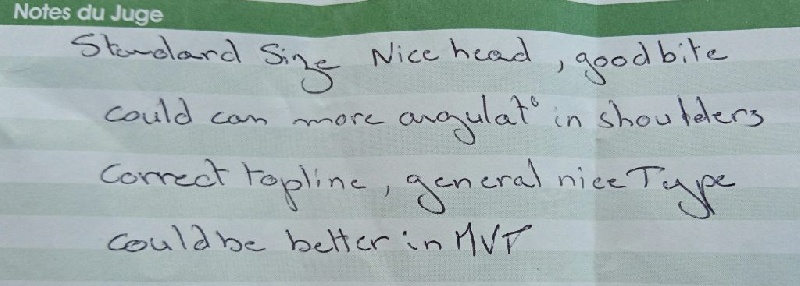 Notes du Juge
Standard Size Nice head, good bite
could can more angulat° in shoulders
Correct topline, general nice Type
could be better in MVT